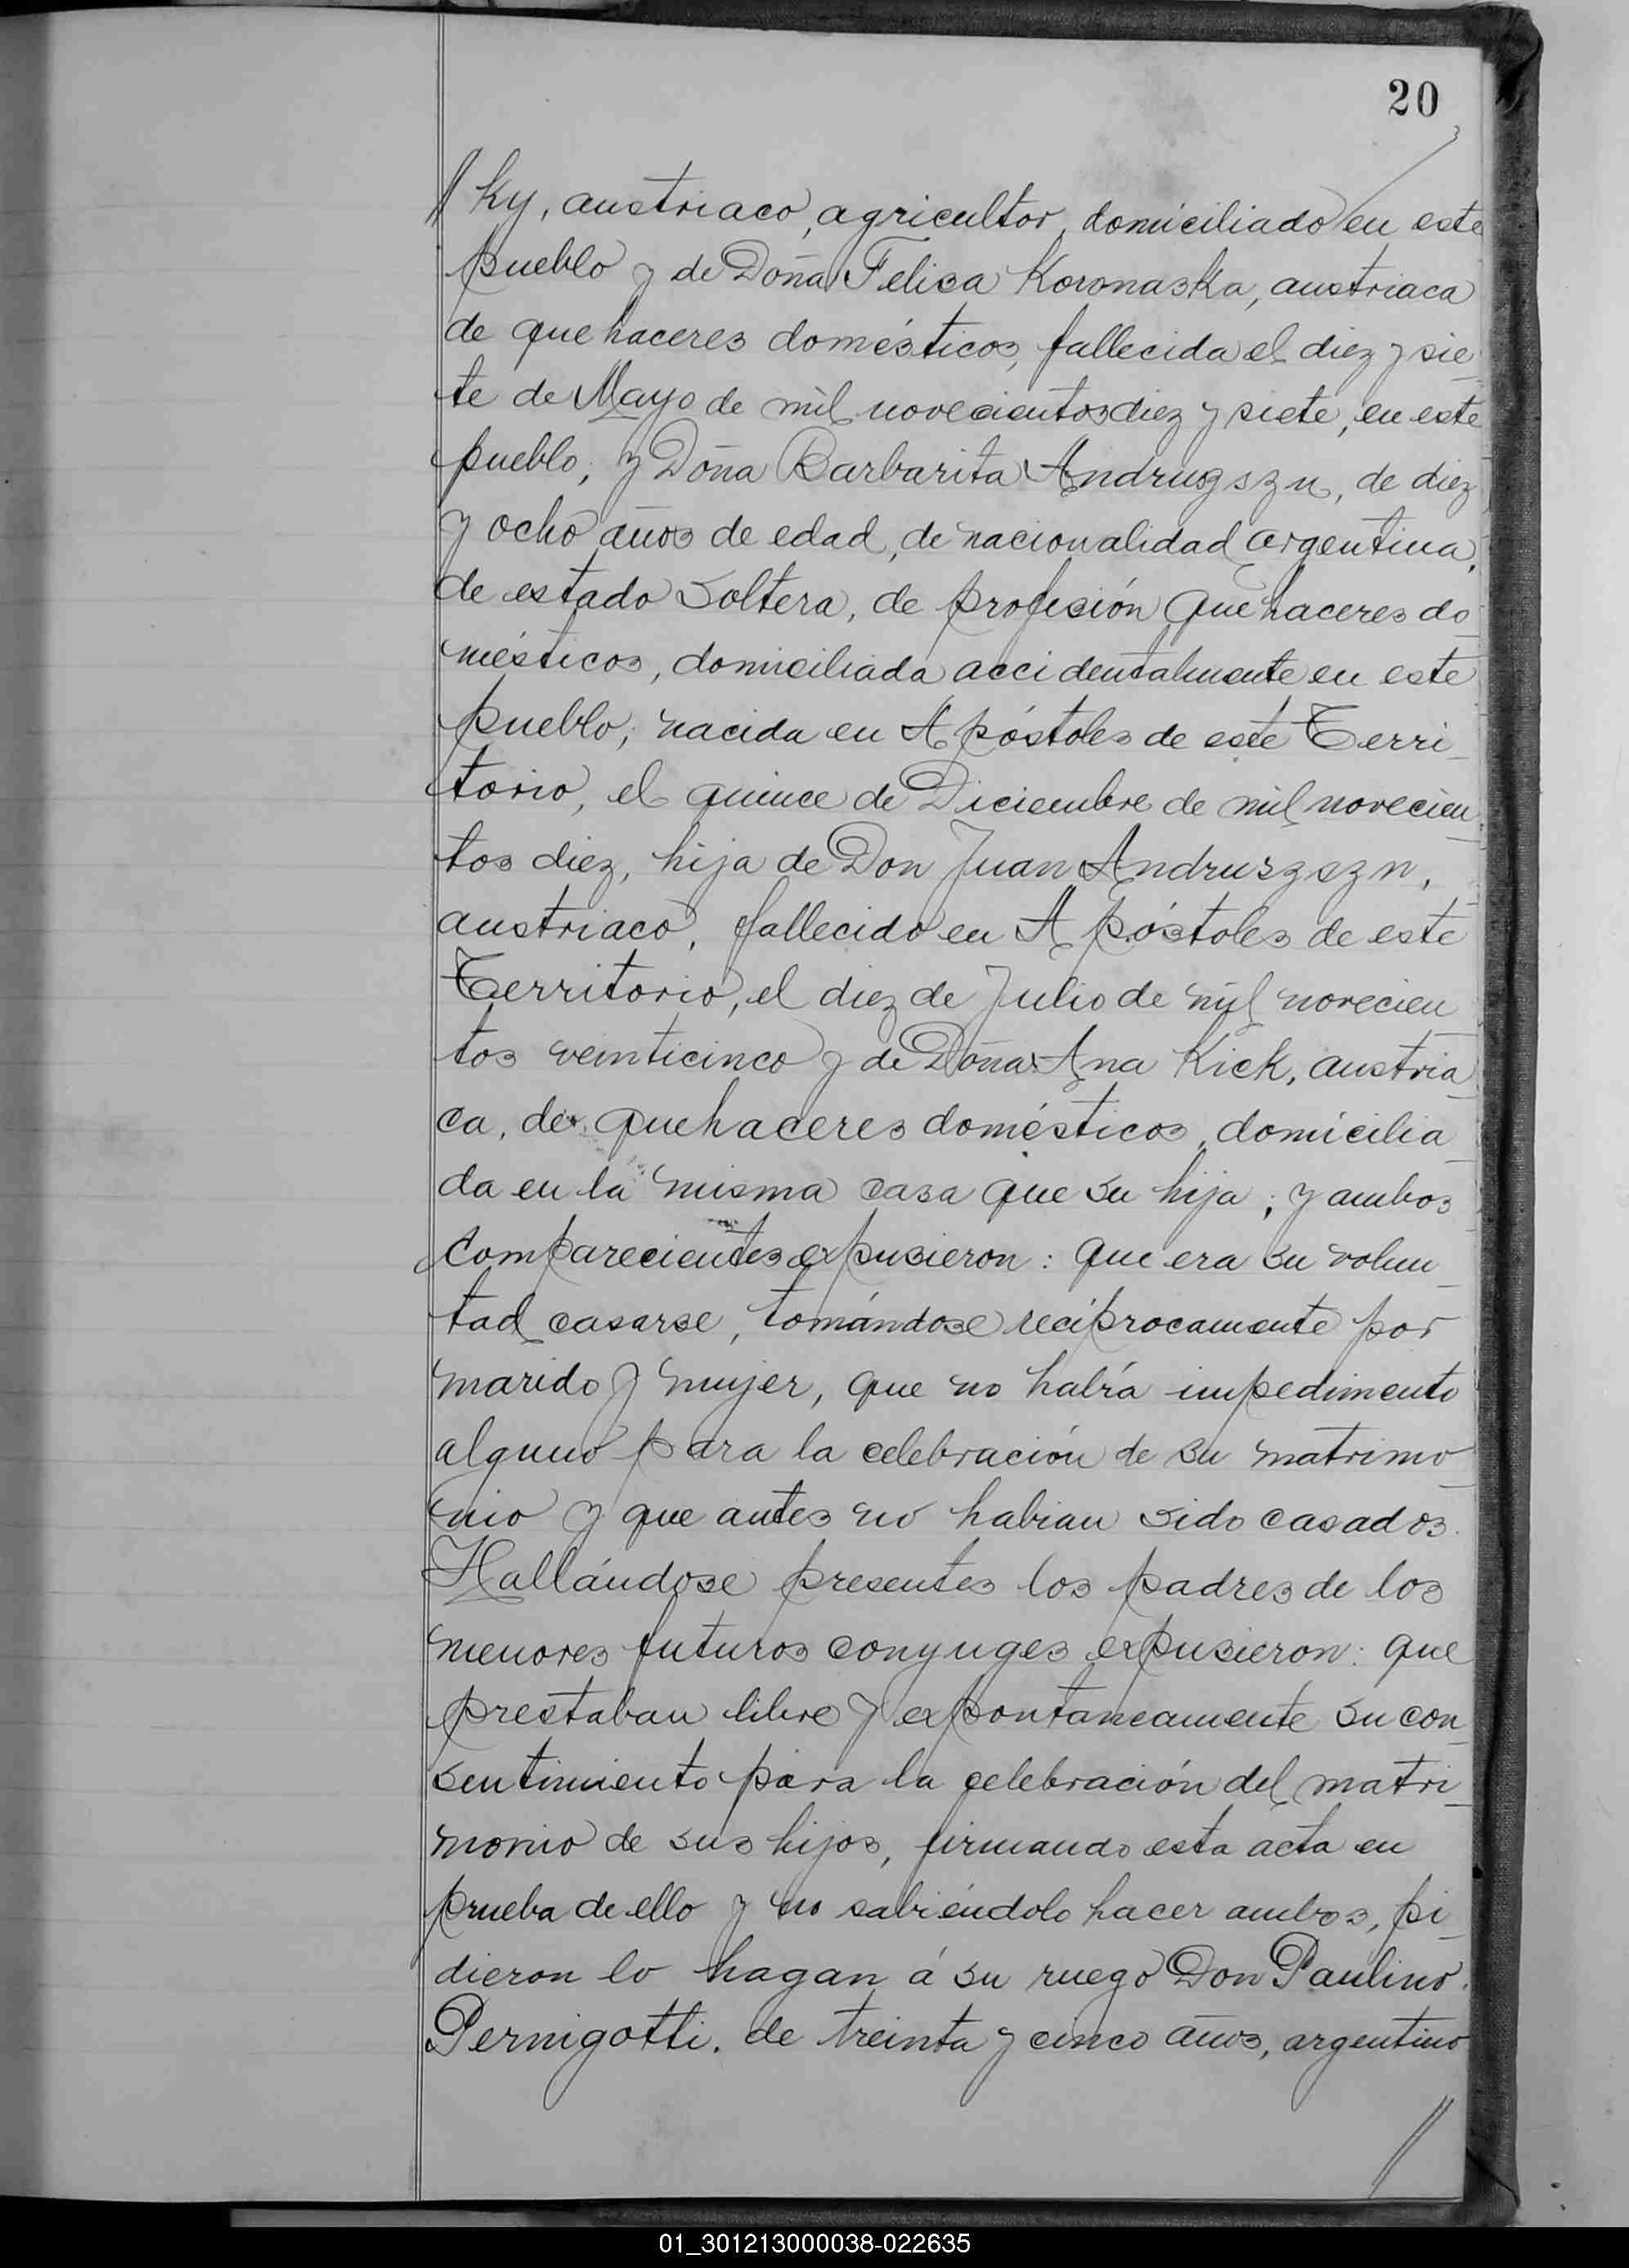 20
// ky, austriaco, agricultor, domiciliado en este
pueblo y de Doña Felisa Koronaska, austriaca
de quehaceres domésticos, fallecida el diez y sie_
te de Mayo de mil novecientos diez y siete, en este
pueblo; y Doña Barbarita Andruszszn, de diez
y ocho años de edad, de nacionalidad argentina,
de estado soltera, de profesión quehaceres do_
mésticos, domiciliada accidentalmente en este
pueblo; nacida en Apóstoles de este Terri_
torio, el quince de Diciembre de mil novecien_
tos diez, hija de Don Juan Andruszszn,
austriaco, fallecido en Apóstoles de este
Territorio, el diez de Julio de mil novecien
tos veinticinco y de Doña Ana Kick, austria_
ca, de quehaceres domésticos, domicilia_
da en la misma casa que su hija; y ambos
comparecientes expusieron: que era su volun_
tad casarse, tomándose recíprocamente por
marido y mujer, que no había impedimento
alguno para la celebración de su matrimo_
nio y que antes no habian sido casados.
Hallándose presentes los padres de los
menores futuros conyuges expusieron: que
prestaban libre y expontaneamente su con_
sentimiento para la celebración del matri_
monio de sus hijos, firmando esta acta en
prueba de ello y no sabiéndolo hacer ambos, pi_
dieron lo hagan á su ruego Don Paulino
Pernigotti, de treinta y cinco años, argentino
//
01_301213000038-022635